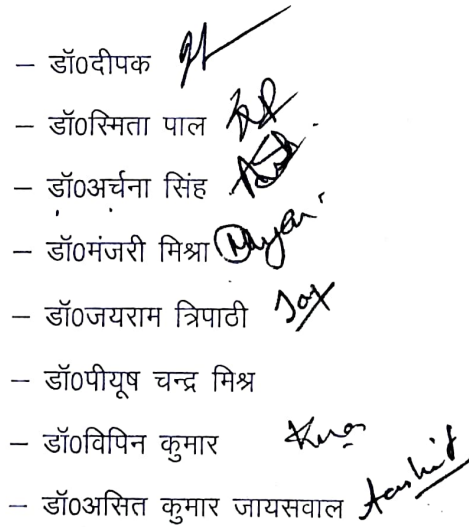 – डॉ0दीपक
– डॉ0स्मिता पाल
– डॉ0अर्चना सिंह
– डॉ0मंजरी मिश्रा
– डॉ0जयराम त्रिपाठी
– डॉ0पीयूष चन्द्र मिश्र
– डॉ0विपिन कुमार
– डॉ0असित कुमार जायसवाल